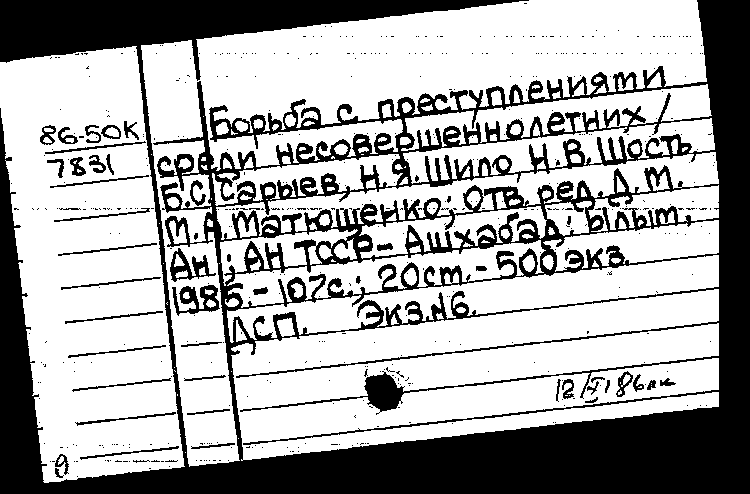 86-50К
7831
Борьба с преступлениями
среди несовершеннолетних /
Б.С.Сарыев, Н.Я.Шило, Н.В.Шость,
М.А.Матющенко; Отв. ред. Д.М.
Ан ; АН ТССР.- Ашхабад: Ылым,
1985.- 107с.; 20см.- 500экз.
ДСП. Экз.№6.